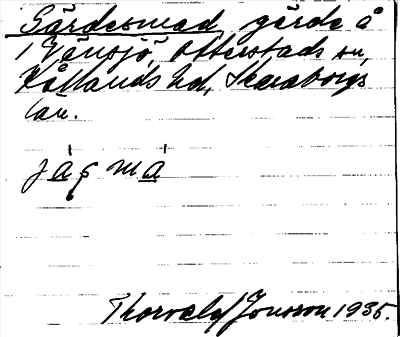 Gärdesmad, gärde å
1 Vänsjö, Otterstads sn,
Kållands hd, Skaraborgs
län.
Thorvald Jonsson 1935.